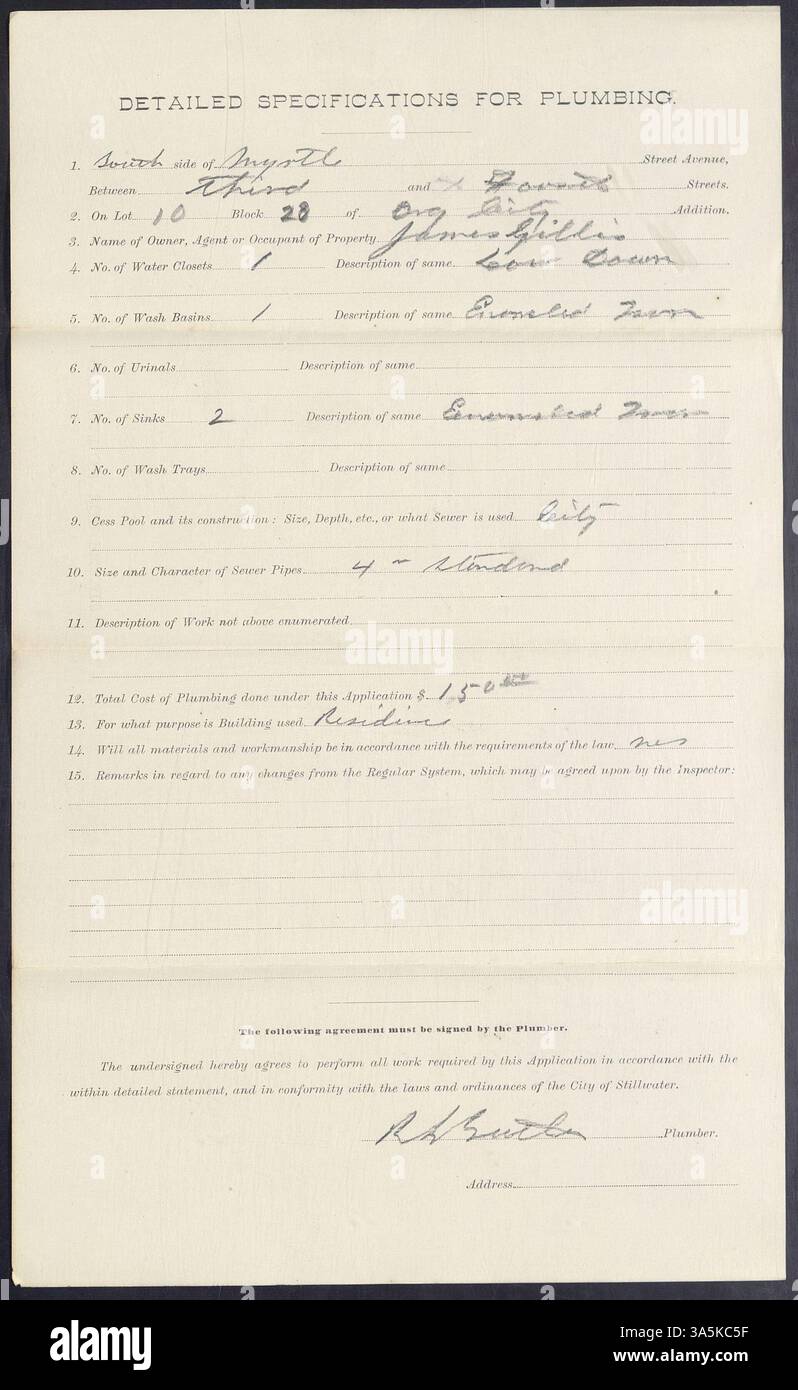 DETAILED SPECIFICATIONS FOR PLUMBING.
1. South side of Myrtle Street Avenue,
Between Third and Fourth Streets.
2. On Lot 10 Block 28 of Org City Addition.
3. Name of Owner, Agent or Occupant of Property James Gillis
4. No. of Water Closets 1 Description of same Low Down
5. No. of Wash Basins 1 Description of same Enameled Iron
6. No. of Urinals Description of same
7. No. of Sinks 2 Description of same Enameled Iron
8. No. of Wash Trays Description of same
9. Cess Pool and its construction: Size, Depth, etc., or what Sewer is used City
10. Size and Character of Sewer Pipes 4" Standard
11. Description of Work not above enumerated
12. Total Cost of Plumbing done under this Application $ 150.00
13. For what purpose is Building used Residence
14. Will all materials and workmanship be in accordance with the requirements of the law yes
15. Remarks in regard to any changes from the Regular System, which may be agreed upon by the Inspector:
The following agreement must be signed by the Plumber.
The undersigned hereby agrees to perform all work required by this Application in accordance with the
within detailed statement, and in conformity with the laws and ordinances of the City of Stillwater.
R L Plumber.
Address
alamy
Image ID: 3A5KC5F
www.alamy.com